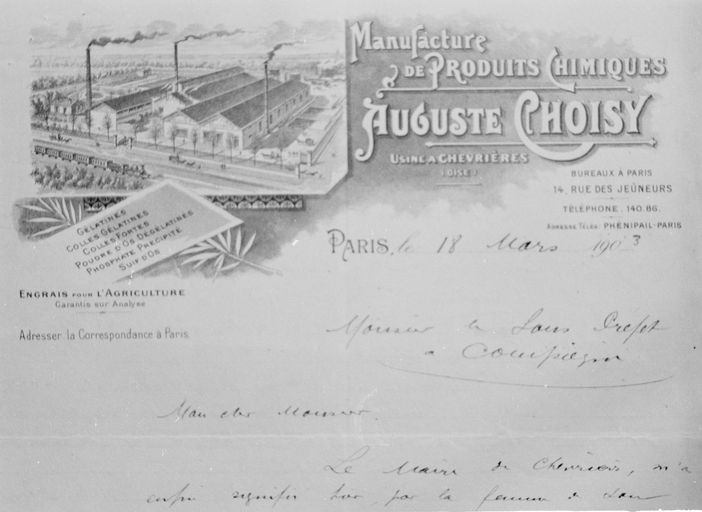 Manufacture
DE PRODUITS CHIMIQUES
AUGUSTE CHOISY
USINE A CHEVRIÈRES
(OISE)
BUREAUX À PARIS
14, RUE DES JEÛNEURS
TÉLÉPHONE. 140.86.
ADRESSE TÉLÉG. PHÉNIPAIL-PARIS
GÉLATINES
COLLES GÉLATINES
COLLES FORTES
POUDRE D'OS DÉGÉLATINÉS
PHOSPHATE PRÉCIPITÉ
SUIF D'OS
ENGRAIS POUR L'AGRICULTURE
Garantis sur Analyse
Adresser la Correspondance à Paris.
PARIS, le 18 Mars 1903
Monsieur le Sous Préfet
à Compiègne
Mon cher Monsieur,
Le Maire de Chevrières, m'a
enfin signifié hier par la femme de son